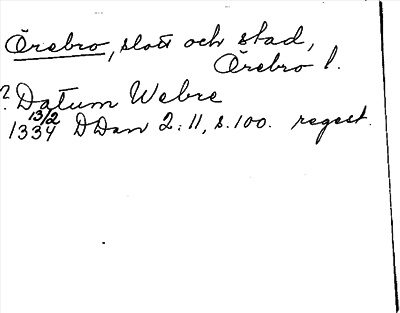 Örebro, slott och stad,
Örebro l.
? Datum Webre
1334 13/2 DDan 2:11, s. 100. regest.